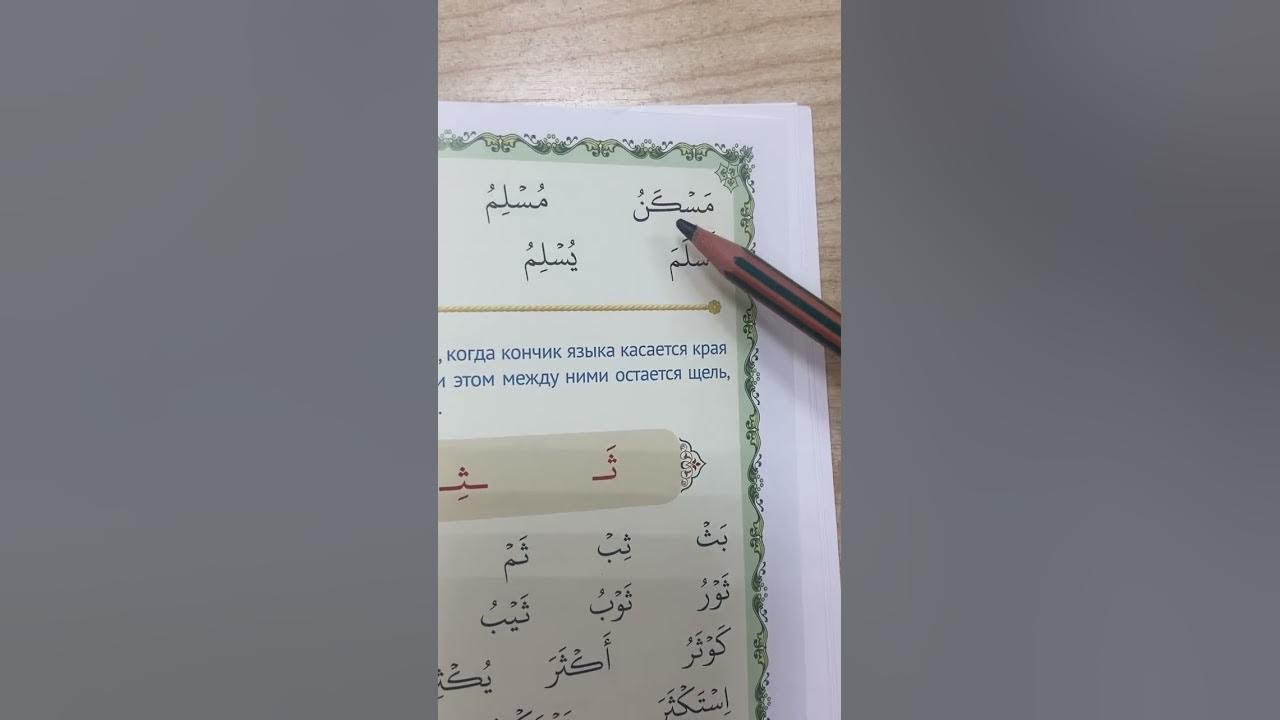 مَسْكَنُ مُسْلِمُ
يُسْلِمُ
, когда кончик языка касается края
и этом между ними остается щель,
ثَـ ـثِـ
بَثْ ثِبْ ثَمْ
ثَوْرُ ثَوْبُ ثَيْبُ
كَوْثَرُ أَكْثَرَ
اِسْتَكْثَرَ